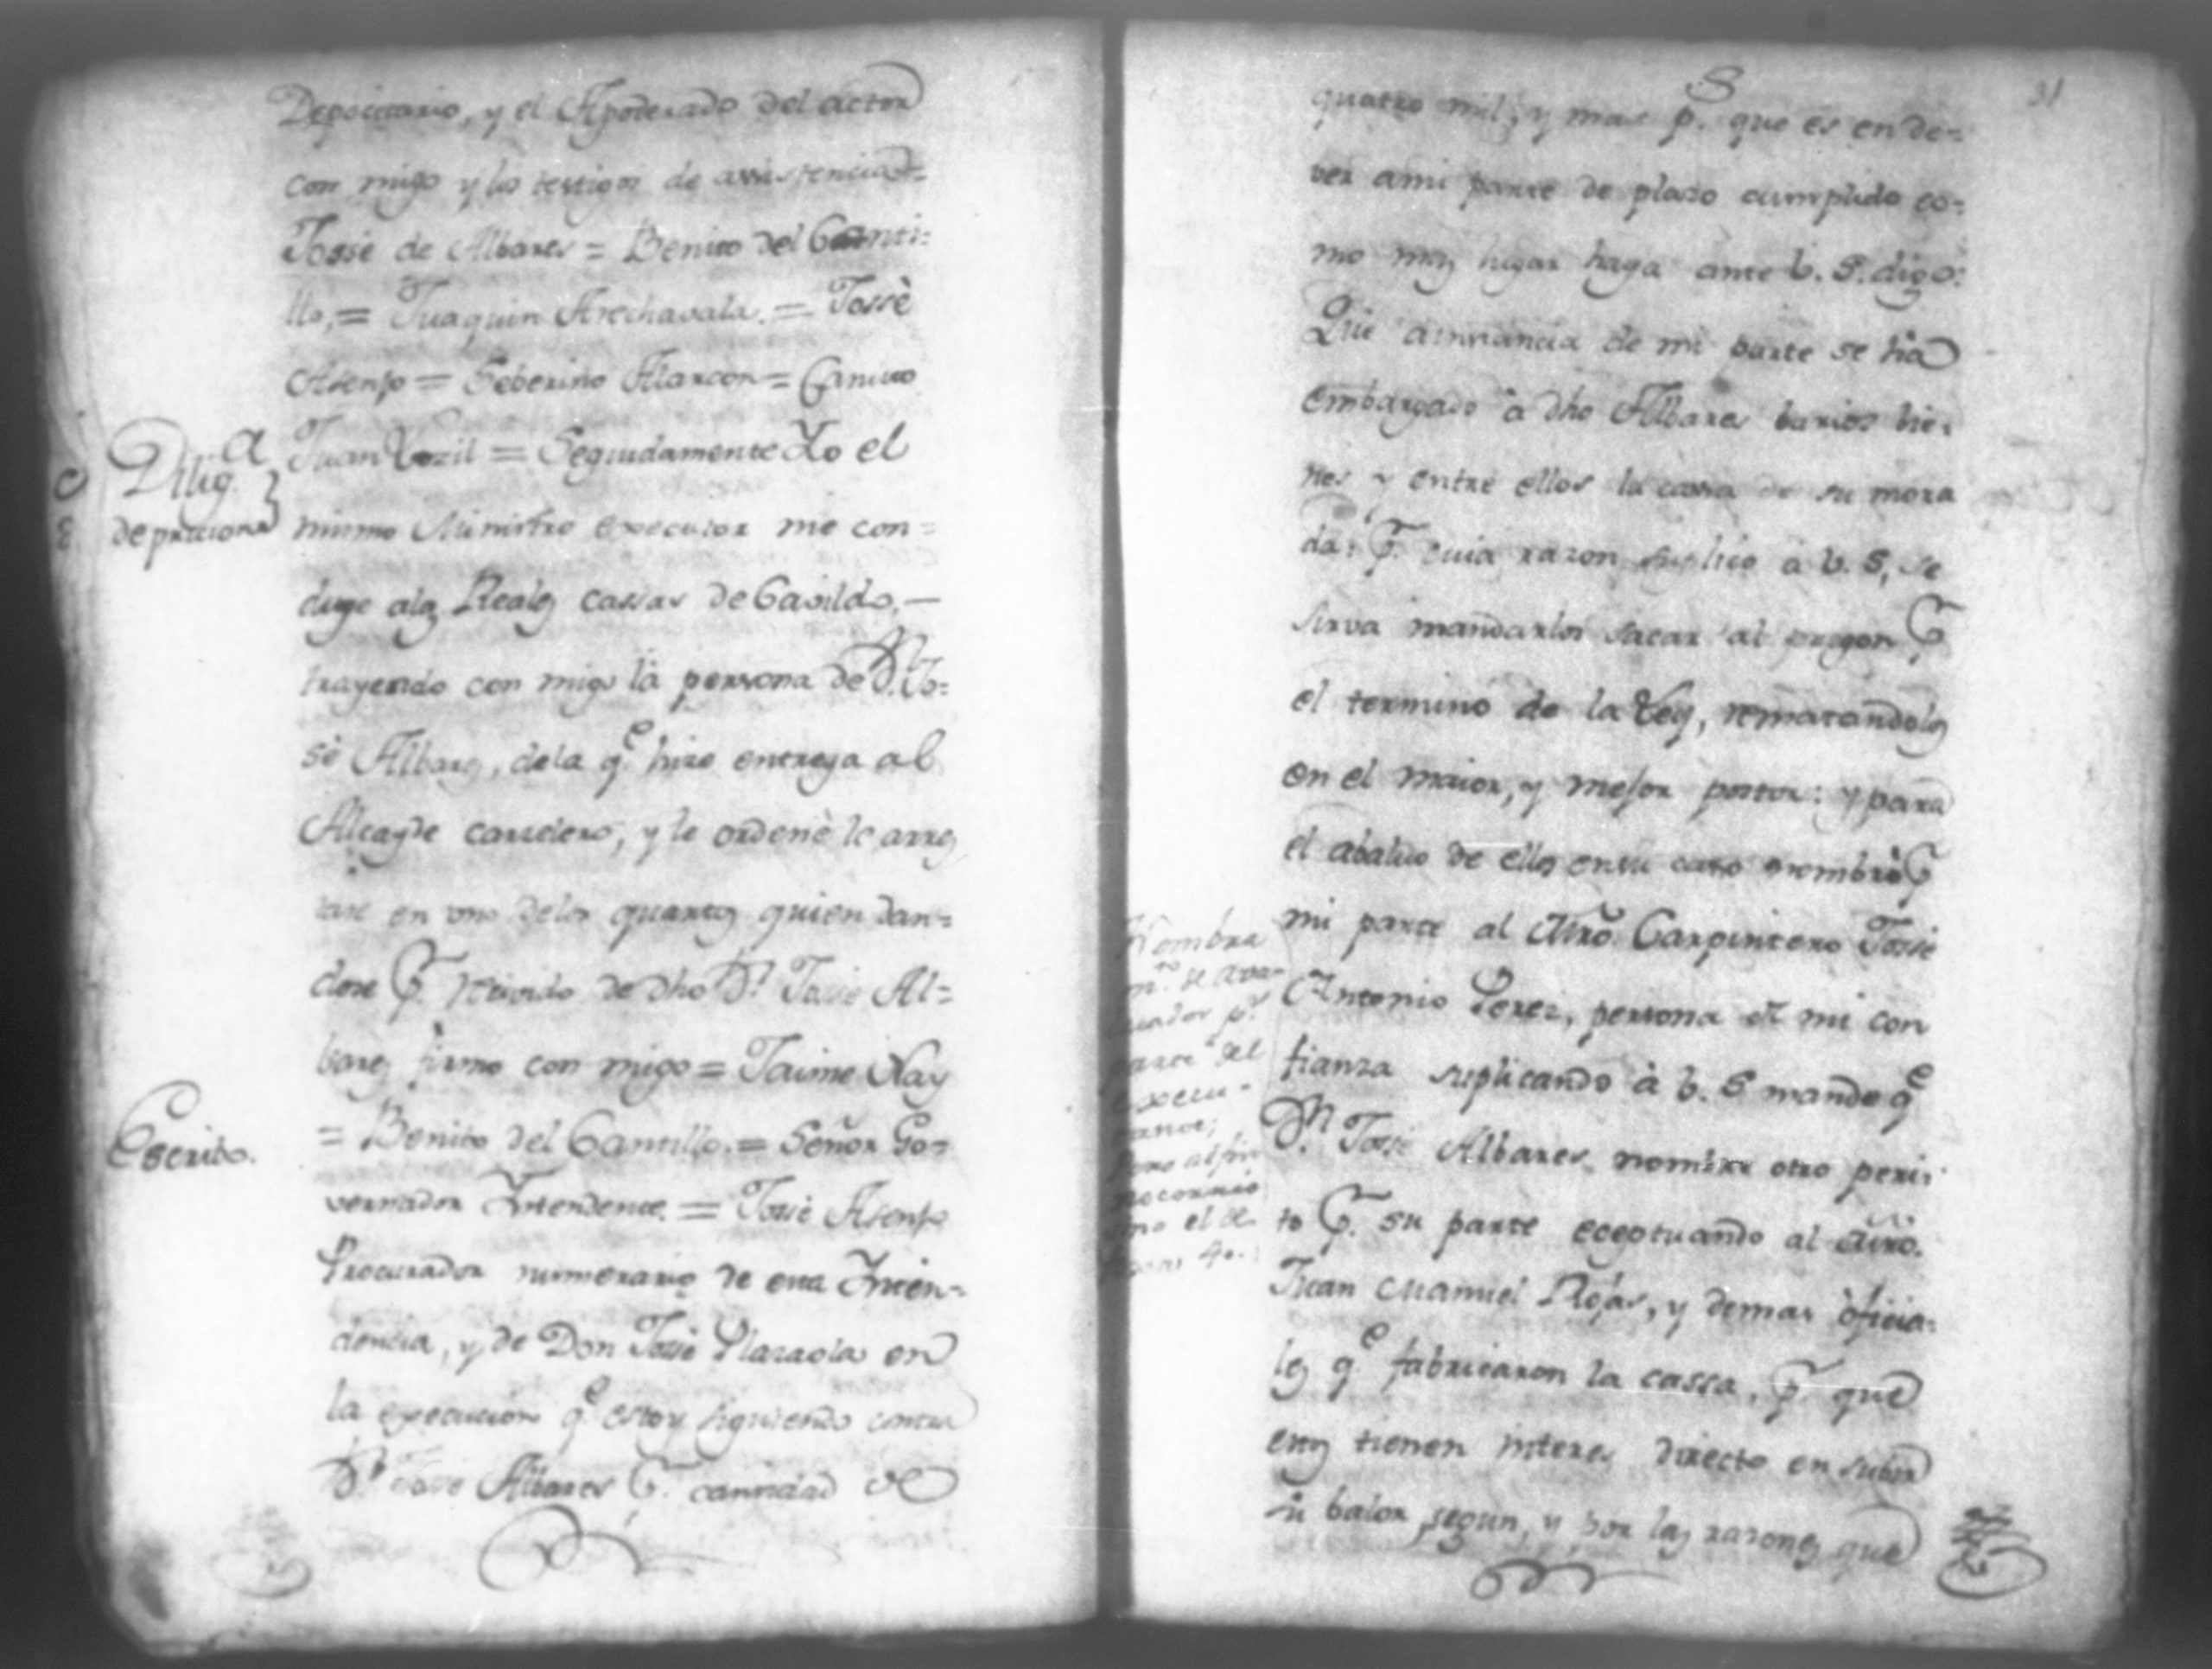 Depocitario, y el Apoderado del actor
con migo y los testigos de assistencia =
Jossé de Albares = Benito del Canti=
llo, = Juaquin Arechavala. = Jossè
Asenjo = Seberino Alarcon = Camino
Juan Vozil = Seguidamente Yo el
Dilig.a
de priciona
mismo Ministro executor me con=
duge alas Reales cassas de Cavildo, —
trayendo con migo la persona de D.n Jo=
sè Albares, dela q.e hize entrega al
Alcayde carcelero, y le ordenè le arres
tase en uno delos quartos quien dan=
dose P.r recivido de dho D.n Jose Al=
bares firmo con migo = Jaime Nay
Escrito.
= Benito del Cantillo. = Señor Go=
vernador Yntendente. = Jossè Asenjo
Procurador numerario de esta Ynten=
dencia, y de Don Jossè Plazaola en
la execucion q.e estoy siguiendo contra
D.n Jose Albares P.r cantidad de
31
quatro mil, y mas p.s que es en de=
ver ami parte de plazo cumplido co=
mo mas lugar haya ante V. S. digo:
Que ainstancia de mi parte se ha
embargado à dho Albares barios bie=
nes y entre ellos la cassa de su mora
da: P.r cuia razon suplico à V. S, se
sirva mandarlos sacar al pregon P.r
el termino de la Ley, rematandolos
en el maior, y mejor postor: y para
el abaluo de ellos en su caso nombrò P.r
mi parte al Mro. Carpintero Jossè
Antonio Perez, persona de mi con
fianza suplicando à V. S mande q.e
D.n Jossè Albares nombre otro peri=
to P.r su parte eceptuando al Mro.
Juan Manuel Rojas, y demas oficia=
les q.e fabricaron la cassa, P.r que
estos tienen interes directo en subir
su balor segun, y por las razones que
Nombra
m.to de ava=
luador p.r
parte del
execu=
tante;